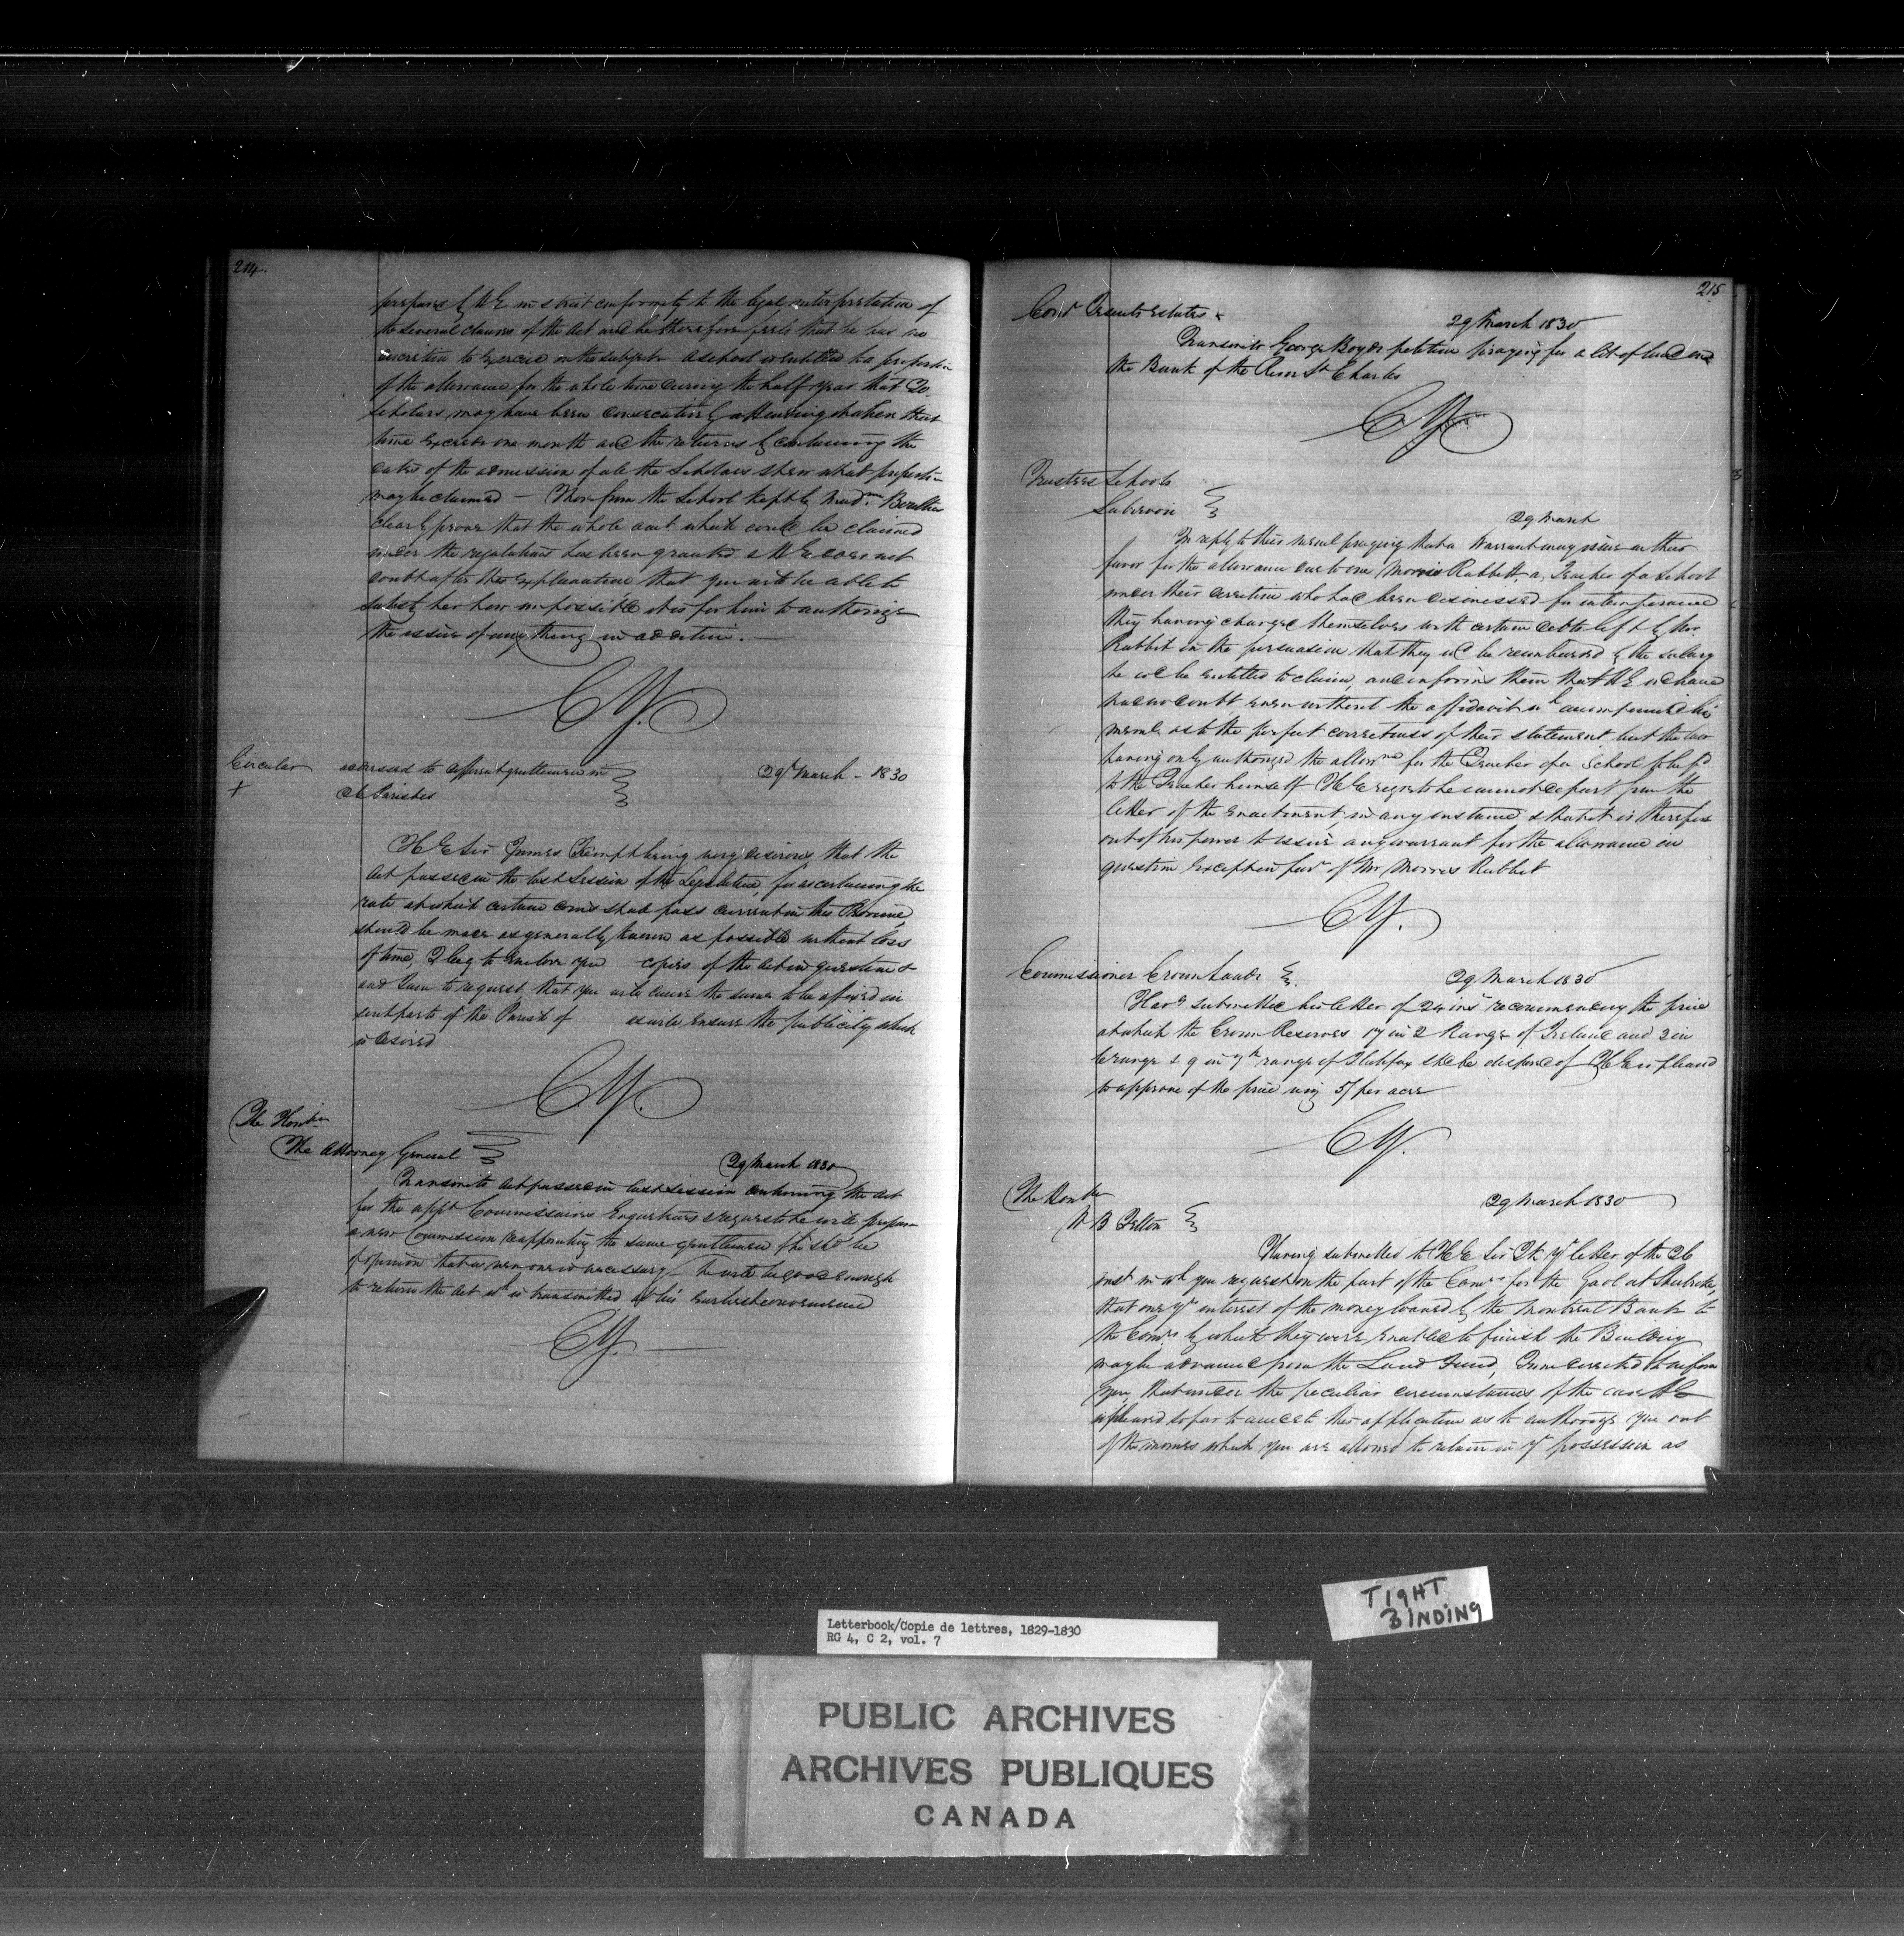 214.
prepared by H E in strict conformity to the legal interpretation of
the several clauses of the Act and he therefore feels that he has no
discretion to exercise on the subject a school is entitled to a proportion
of the allowance for the whole time during the half year that 20
Scholars may have been consecutively attending when that
time exceeds one month and the returns by containing the
dates of the admission of all the Scholars shew what proportion
may be claimed — Those from the School kept by Mad.m
clearly prove that the whole amt which could be claimed
under the regulations has been granted & H E does not
doubt after this explanation that you will be able to
satisfy her how impossible it is for him to authorize
the issue of any thing in addition. —
CY.
Circular addressed to different gentlemen in
+ dt Parishes
29 March - 1830
H E Sir James Kempt being very desirous that the
Act passed in the last Session of the Legislature, for ascertaining the
rate at which certain coins shall pass current in this Province,
should be made as generally known as possible without loss
of time, I beg to enclose you copies of the Act in question &
and I am to request that you will cause the same to be affixed in
such parts of the Parish of as will ensure the publicity which
is desired
CY.
The Honble
The Attorney General
29 March 1830
Transmits Act passed in last Session continuing the Act
for the appt Commissioners Enquirers & requests he will prepare
a new Commission reappointing the same gentlemen if he shd be
of opinion that a new one is necessary — he will be good enough
to return the Act wh is transmitted at his earliest convenience
CY.
215
Comr Jesuits Estates
29 March 1830
Transmits George Boyds petition praying for a lot of land on
the Bank of the River St Charles
CY
Trustees Schools
29 March
In reply to their meml praying that a Warrant may issue in their
favor for the allowance due to one Morris Rabbitt a Teacher of a School
under their direction who had been dismissed for intemperance
they having charged themselves with certain debts left by Mr
Rabbit in the persuasion that they wd be reimbursed by the salary
he wd be entitled to claim, and informs them that H E
has no doubt even without the affidavit wh accompanied his
meml as to the perfect correctness of their statement but the law
having only authorized the allowce for the Teacher of a School to be pd
to the Teacher himself H E regrets he cannot depart from the
letter of the enactment, in any instance & that it is therefore
out of his power to issue any warrant for the allowance in
question except in favr of Mr Morris Rabbit
CY.
Commissioner Crown Lands
29 March 1830
Havg submitted his letter of 24 inst recommending the price
at which the Crown Reserves 17 in 2 Range of Ireland and 3 in
range & 9 in 7th range of Halifax shd be disposed of H E is pleased
to approve of the price viz 5/ per acre
CY.
The Honble
W B Felton
29 March 1830
Having submitted to H E Sir J K yr letter of the 26
inst in wh you request on the part of the Comrs for the Gaol at Sherbrooke,
that one yrs interest of the money loaned by the Montreal Bank to
the Comrs by which they were enabled to finish the Building
may be advanced from the Land Fund, I am directed to inform
you, that under the peculiar circumstances of the case H E
is pleased so far to accede to this application as to authorize you out
of the monies which you are allowed to retain in yr possession as
TIGHT
BINDING
Letterbook/Copie de lettres, 1829-1830
RG 4, C 2, vol. 7
PUBLIC ARCHIVES
ARCHIVES PUBLIQUES
CANADA